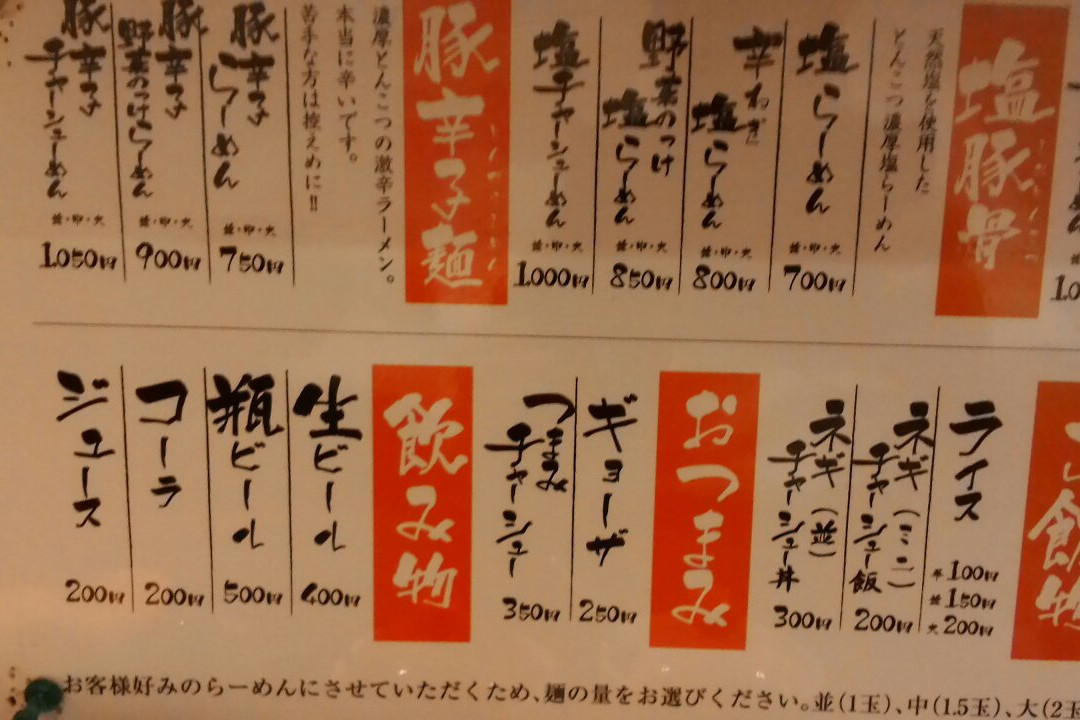 塩豚骨
天然塩を使用した
とんこつ濃厚塩らーめん
塩らーめん
並・中・大
700円
辛ねぎ
塩らーめん
並・中・大
800円
野菜のっけ
塩らーめん
並・中・大
850円
塩チャーシューめん
並・中・大
1,000円
豚辛子麺
濃厚とんこつの激辛ラーメン。
本当に辛いです。
苦手な方は控えめに!!
豚辛子
らーめん
並・中・大
750円
豚辛子
野菜のっけらーめん
並・中・大
900円
豚辛子
チャーシューめん
並・中・大
1,050円
ご飯物
ライス
半 100円
並 150円
大 200円
ネギ(ミニ)
チャーシュー飯
200円
ネギ(並)
チャーシュー丼
300円
おつまみ
ギョーザ
250円
つまみ
チャーシュー
350円
飲み物
生ビール
400円
瓶ビール
500円
コーラ
200円
ジュース
200円
お客様好みのらーめんにさせていただくため、麺の量をお選びください。並(1玉)、中(1.5玉)、大(2玉